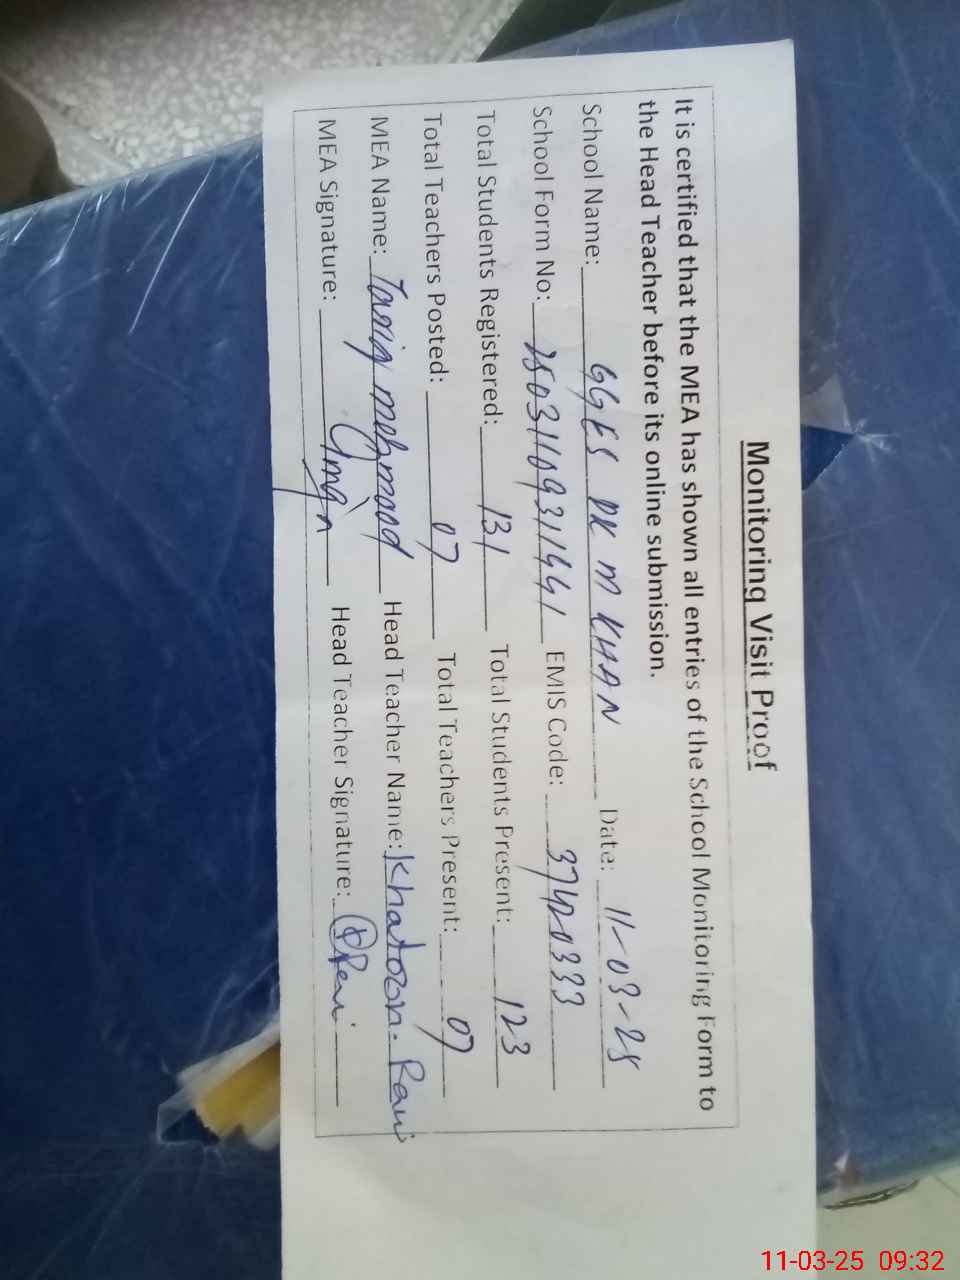 Monitoring Visit Proof
It is certified that the MEA has shown all entries of the School Monitoring Form to
the Head Teacher before its online submission.
School Name: GGES DK M KHAN Date: 11-03-25
School Form No: 25031109311441 EMIS Code: 37420333
Total Students Registered: 131 Total Students Present: 123
Total Teachers Posted: 07 Total Teachers Present: 07
MEA Name: Tariq mehmood Head Teacher Name: Khatoon - Rani
MEA Signature: Head Teacher Signature:
11-03-25 09:32